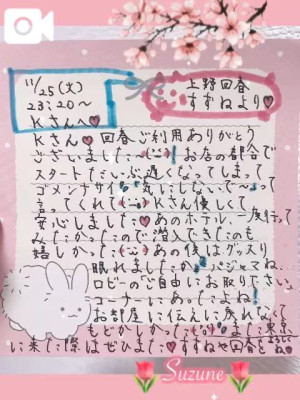 11/25(火)
23:20〜
Kさんへ♥
上野回春
すずねより♥
Kさん♥回春ご利用ありがとう
ございました〜(¨)!お店の都合で
スタートだいぶ遅くなってしまって
ゴメンナサイ 気にしないで〜って
言ってくれてKさん優しくて
安心しました♥あのホテル、一度行って
みたかったので潜入できたのも
嬉しかったです あの後はグッスリ
眠れましたか?パジャマね、
ロビーのご自由にお取り下さい
コーナーにあったよね!
お部屋に伝えに戻れなくて
もどかしかった また東京
に来た際はぜひまた♥すずねや回春をよろしくね♥
Suzune